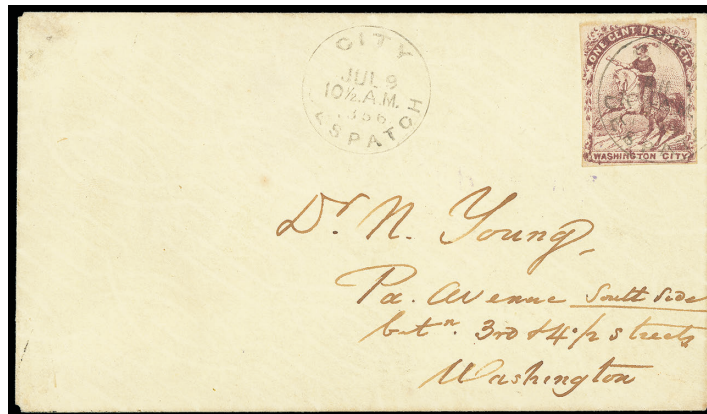 CITY
JUL 9
10½ A.M.
1856
DESPATCH
ONE CENT DESPATCH
WASHINGTON CITY
Dr. N. Young,
Pa. Avenue South Side
betn. 3rd & 4½ streets
Washington